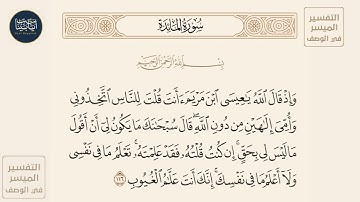 سُورَةُ المَائِدَة
التفسير
الميسر
في الوصف
بِسْمِ اللَّهِ الرَّحْمَٰنِ الرَّحِيمِ
وَإِذْ قَالَ اللَّهُ يَٰعِيسَى ابْنَ مَرْيَمَ ءَأَنتَ قُلْتَ لِلنَّاسِ اتَّخِذُونِي
وَأُمِّيَ إِلَٰهَيْنِ مِن دُونِ اللَّهِ ۖ قَالَ سُبْحَٰنَكَ مَا يَكُونُ لِي أَنْ أَقُولَ
مَا لَيْسَ لِي بِحَقٍّ ۚ إِن كُنتُ قُلْتُهُ فَقَدْ عَلِمْتَهُ ۚ تَعْلَمُ مَا فِي نَفْسِي
وَلَا أَعْلَمُ مَا فِي نَفْسِكَ ۚ إِنَّكَ أَنتَ عَلَّٰمُ الْغُيُوبِ ١١٦
التفسير
الميسر
في الوصف